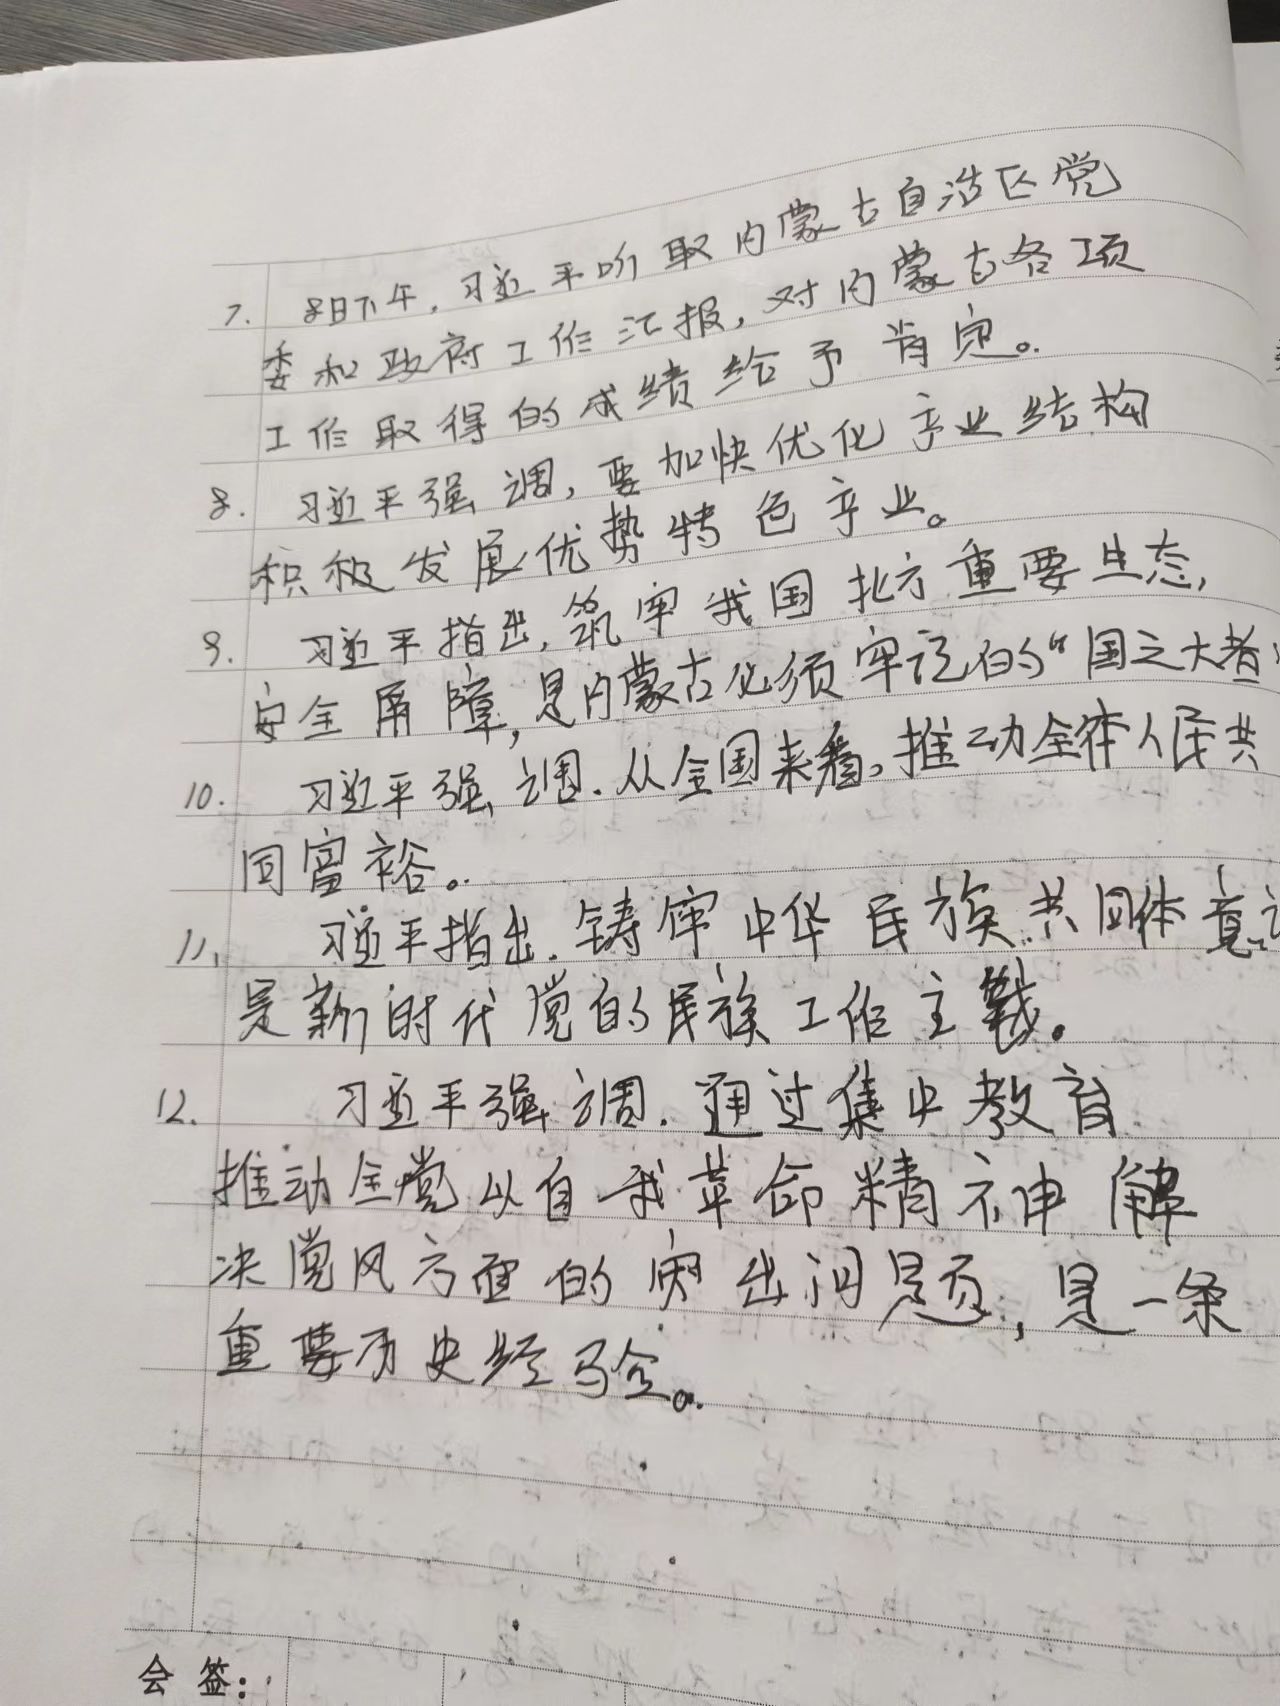 7. 8日下午，习近平听取内蒙古自治区党
委和政府工作汇报，对内蒙古各项
工作取得的成绩给予肯定。
8. 习近平强调，要加快优化产业结构
积极发展优势特色产业。
9. 习近平指出，筑牢我国北方重要生态，
安全屏障，是内蒙古必须牢记的“国之大者
10. 习近平强调．从全国来看。推动全体人民共
同富裕。
11. 习近平指出．铸牢中华民族共同体意
是新时代党的民族工作主线。
12. 习近平强调．通过集中教育
推动全党以自我革命精神解
决党风方面的突出问题，是一条
重要历史经验。
会签：